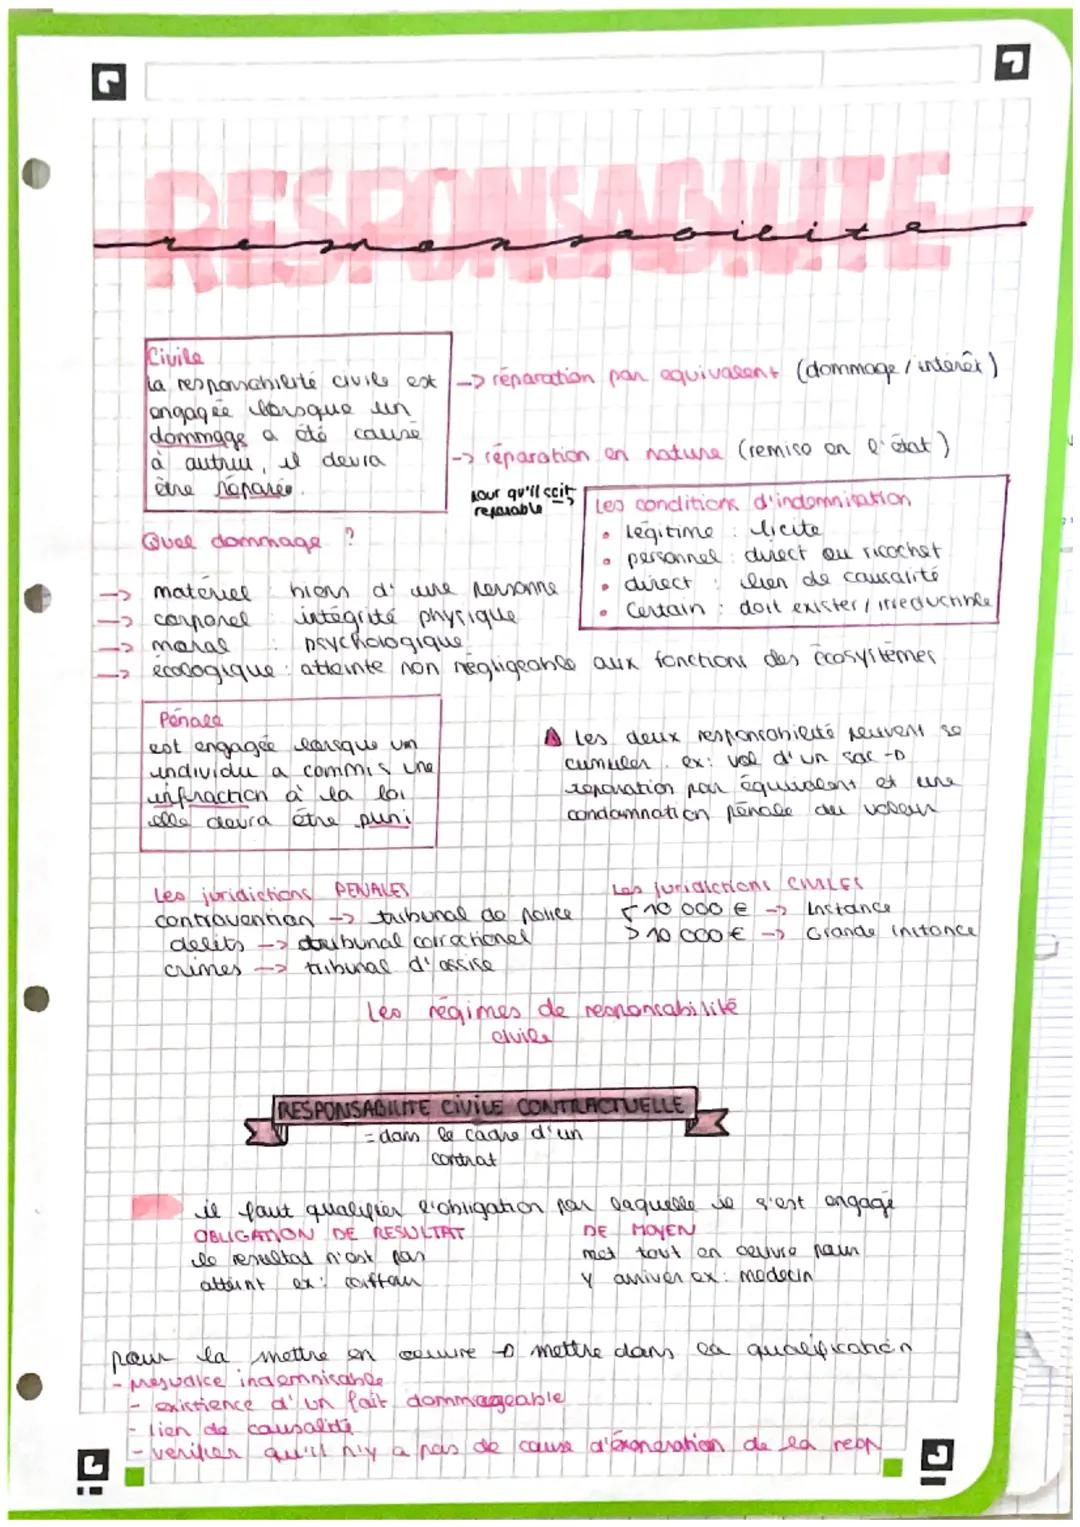 RESPONSABILITE
responsabilite
Civile
La responsabilité civile est
engagée lorsque un
dommage a été causé
à autrui, il devra
être réparée.
-> réparation par equivalent (dommage / intérêt)
-> réparation en nature (remise en l'état)
pour qu'il soit
reparable
Les conditions d'indemnisation
• Légitime : licite
• personnel : direct ou ricochet
• direct : lien de causalité
• Certain : doit exister / irreductible
Quel dommage ?
-> matériel : biens d'une personne
-> corporel : intégrité physique
-> moral : psychologique
-> écologique : atteinte non négligeable aux fonctions des écosystèmes
Pénale
est engagée lorsque un
individu a commis une
infraction à la loi
elle devra être puni
Les deux responsabilité peuvent se
cumuler. ex: vol d'un sac ->
réparation par équivalent et une
condamnation pénale du voleur
Les juridictions PENALES
contravention -> tribunal de police
delits -> tribunal correctionel
crimes -> tribunal d'assise
Les juridictions CIVILES
< 10 000 € -> Instance
> 10 000 € -> Grande instance
Les régimes de responsabilité
civile
RESPONSABILITE CIVILE CONTRACTUELLE
= dans le cadre d'un
contrat
il faut qualifier l'obligation par laquelle il s'est engagé
OBLIGATION DE RESULTAT
le resultat n'est pas
atteint ex: coiffeur
DE MOYEN
met tout en oeuvre pour
y arriver ex: medecin
pour la mettre en oeuvre -> mettre dans la qualification
- préjudice indemnisable
- existience d'un fait dommageable
- lien de causalité
- verifier qu'il n'y a pas de cause d'exoneration de la resp